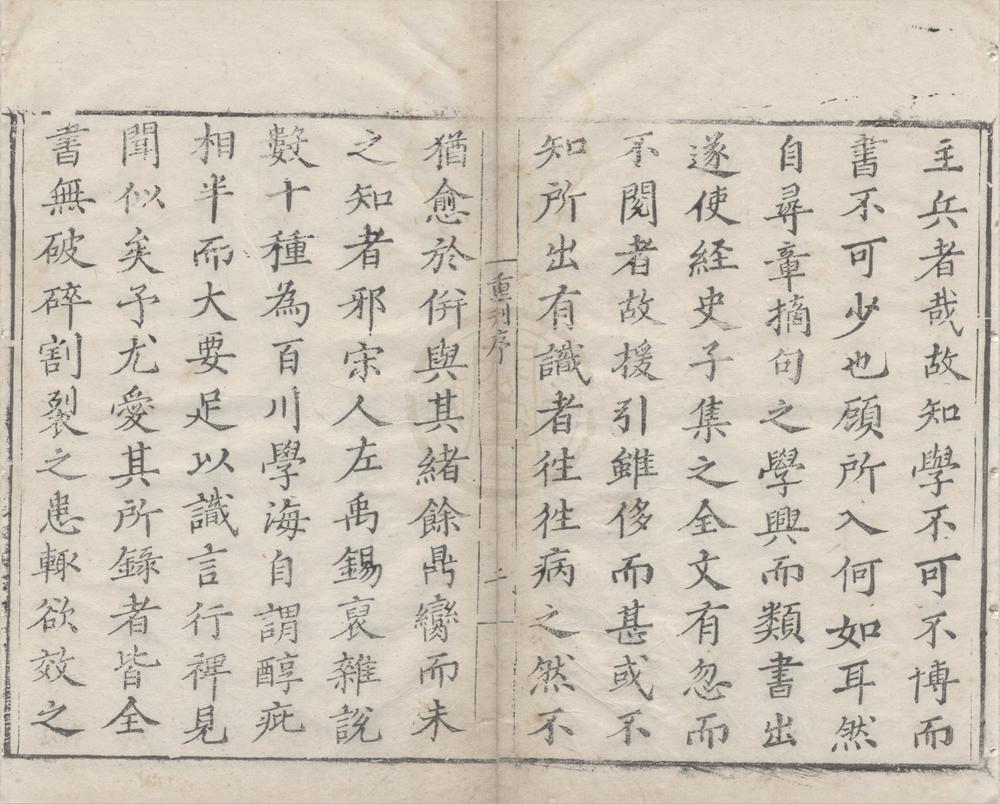 主兵者哉故知學不可不博而
書不可少也顧所入何如耳然
自尋章摘句之學興而類書出
遂使經史子集之全文有忽而
不閱者故援引雖侈而甚或不
知所出有識者徃徃病之然不
重刋序
二
猶愈於倂與其緒餘鼎臠而未
之知者邪宋人左禹錫裒雜說
數十種為百川學海自謂醇疵
相半而大要足以識言行裨見
聞似矣予尤愛其所錄者皆全
書無破碎割裂之患輒欲效之